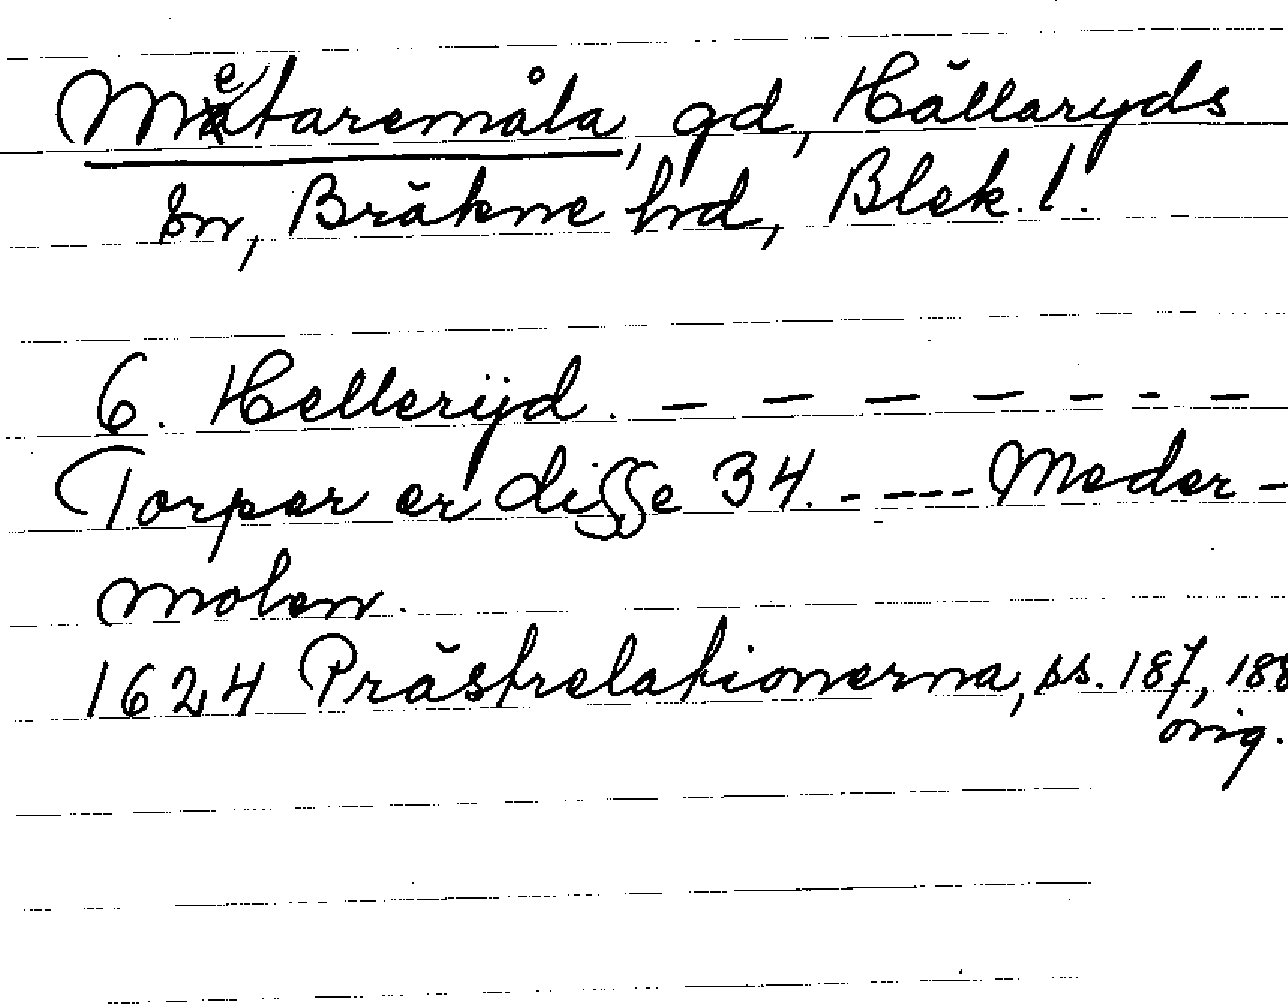 Metaremåla, gd, Hällaryds
sn, Bräkne hrd, Blek. l.
6. Hellerijd. — — — — - - —
Torper er disse 34. - ---- Meder -
molen.
1624 Prästrelationerna, ss. 187, 188
orig.